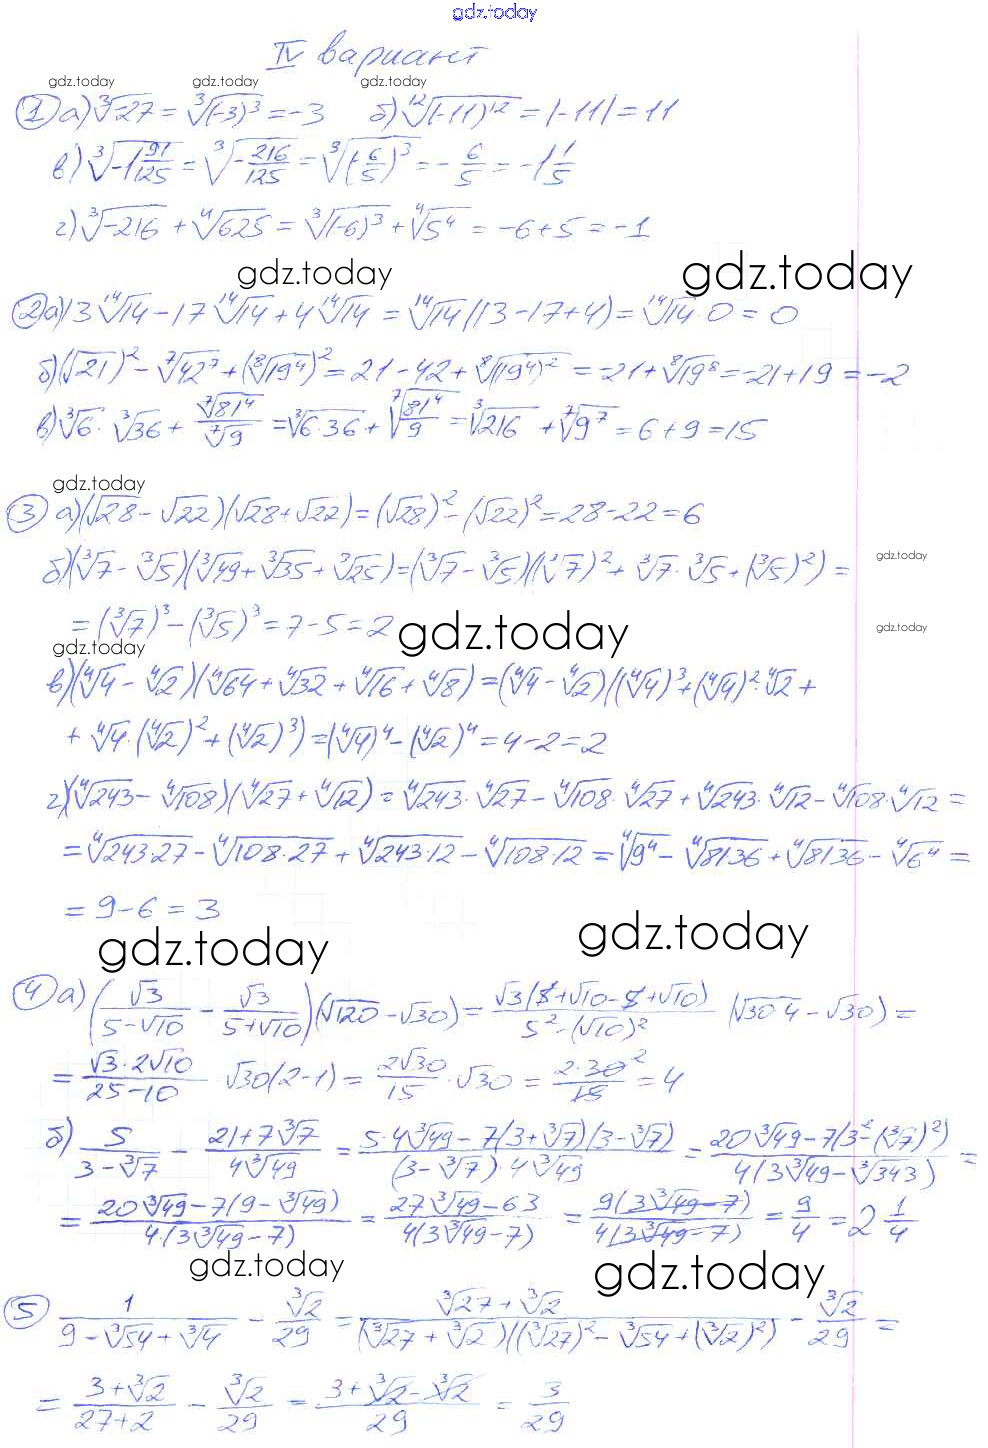 gdz.today
IV вариант
gdz.today gdz.today gdz.today
① а) ∛-27 = ∛(-3)³ = -3 б) ¹²√(-11)¹² = |-11| = 11
в) ∛-1 91/125 = ∛-216/125 = ∛(-6/5)³ = -6/5 = -1 1/5
г) ∛-216 + ⁴√625 = ∛(-6)³ + ⁴√5⁴ = -6+5 = -1
gdz.today gdz.today
② а) 13 ¹⁴√14 - 17 ¹⁴√14 + 4 ¹⁴√14 = ¹⁴√14 (13-17+4) = ¹⁴√14 · 0 = 0
б) (√21)² - ⁷√42⁷ + (⁸√19⁴)² = 21 - 42 + ⁸√(19⁴)² = -21 + ⁸√19⁸ = -21+19 = -2
в) ∛6 · ∛36 + ⁷√81⁴/⁷√9 = ∛6·36 + ⁷√81⁴/9 = ∛216 + ⁷√9⁷ = 6+9 = 15
gdz.today
③ а) (√28 - √22)(√28 + √22) = (√28)² - (√22)² = 28-22 = 6
gdz.today
б) (∛7 - ∛5)(∛49 + ∛35 + ∛25) = (∛7 - ∛5)((∛7)² + ∛7 · ∛5 + (∛5)²) =
= (∛7)³ - (∛5)³ = 7-5 = 2
gdz.today gdz.today
gdz.today
в) (⁴√4 - ⁴√2)(⁴√64 + ⁴√32 + ⁴√16 + ⁴√8) = (⁴√4 - ⁴√2)((⁴√4)³ + (⁴√4)² · ⁴√2 +
+ ⁴√4 · (⁴√2)² + (⁴√2)³) = (⁴√4)⁴ - (⁴√2)⁴ = 4-2 = 2
г) (⁴√243 - ⁴√108)(⁴√27 + ⁴√12) = ⁴√243 · ⁴√27 - ⁴√108 · ⁴√27 + ⁴√243 · ⁴√12 - ⁴√108 · ⁴√12 =
= ⁴√243·27 - ⁴√108·27 + ⁴√243·12 - ⁴√108·12 = ⁴√9⁴ - ⁴√81·36 + ⁴√81·36 - ⁴√6⁴ =
= 9-6 = 3
gdz.today gdz.today
④ а) (√3/(5-√10) - √3/(5+√10))(√120 - √30) = √3(5+√10-5+√10)/(5²-(√10)²) (√30·4 - √30) =
= √3·2√10/(25-10) · √30(2-1) = 2√30/15 · √30 = 2·30/15 2 = 4
б) 5/(3-∛7) - (21+7∛7)/(4∛49) = (5·4∛49 - 7(3+∛7)(3-∛7))/((3-∛7)·4∛49) = (20∛49 - 7(3²-(∛7)²))/(4(3∛49-∛343)) =
= (20∛49 - 7(9-∛49))/(4·(3∛49-7)) = (27∛49-63)/(4(3∛49-7)) = 9(3∛49-7)/(4(3∛49-7)) = 9/4 = 2 1/4
gdz.today gdz.today
⑤ 1/(9-∛54+∛4) - ∛2/29 = (∛27+∛2)/((∛27+∛2)((∛27)²-∛54+(∛2)²)) - ∛2/29 =
= (3+∛2)/(27+2) - ∛2/29 = (3+∛2-∛2)/29 = 3/29